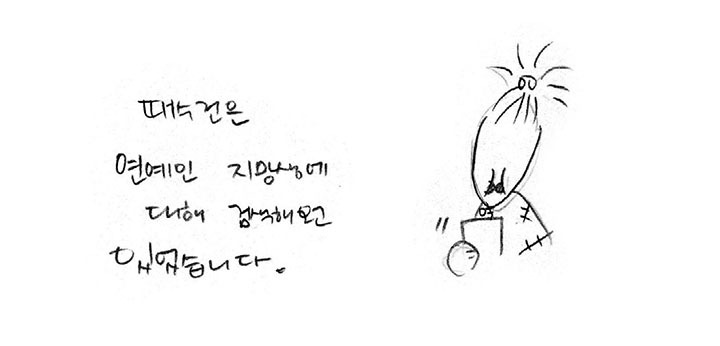 때수건은
연예인 지망생에
대해 검색해보고
있었습니다.